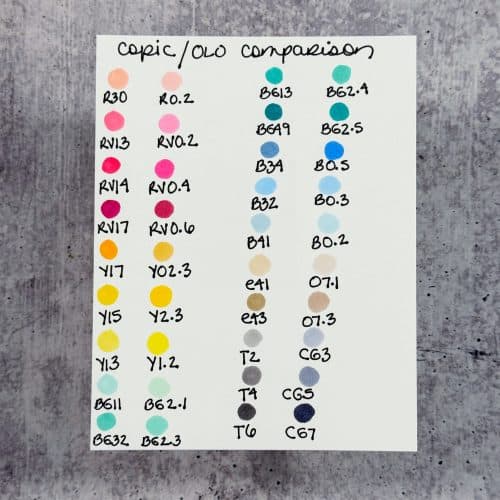 copic/OLO comparison
R30 R0.2
RV13 RV0.2
RV14 RV0.4
RV17 RV0.6
Y17 YO2.3
Y15 Y2.3
Y13 Y1.2
BG11 BG2.1
BG32 BG2.3
BG13 BG2.4
BG49 BG2.5
B34 B0.5
B32 B0.3
B41 B0.2
e41 O7.1
e43 O7.3
T2 CG3
T4 CG5
T6 CG7